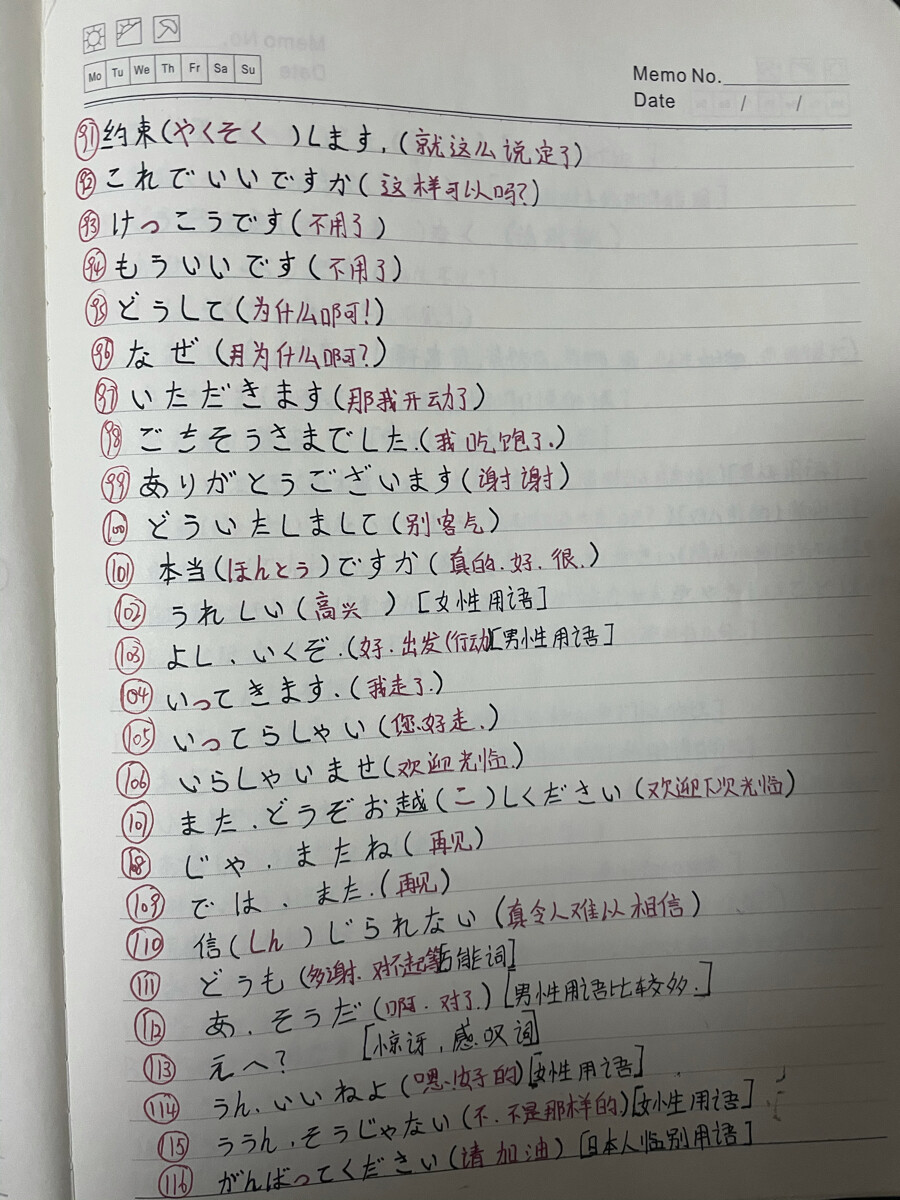 Memo No.
Mo Tu We Th Fr Sa Su
Date / /
91 约束(やくそく )します.(就这么说定了)
92 これでいいですか(这样可以吗?)
93 けっこうです(不用了)
94 もういいです(不用了)
95 どうして(为什么啊!)
96 なぜ(为什么啊?)
97 いただきます(那我开动了)
98 ごちそうさまでした.(我吃饱了.)
99 ありがとうございます(谢谢)
100 どういたしまして(别客气)
101 本当(ほんとう)ですか(真的.好.很.)
102 うれしい(高兴 )[女性用语]
103 よし.いくぞ.(好.出发(行动)[男性用语]
104 いってきます.(我走了.)
105 いってらしゃい(您好走.)
106 いらしゃいませ(欢迎光临.)
107 また.どうぞお越(こ)しください(欢迎下次光临)
108 じゃ.またね(再见)
109 では.また.(再见)
110 信(しん )じられない(真令人难以相信)
111 どうも(多谢.对不起等万能词]
112 あ.そうだ(啊.对了.)[男性用语比较多.]
113 えへ? [惊讶,感叹词]
114 うん.いいねよ(嗯.好的)[女性用语]
115 ううん.そうじゃない(不.不是那样的)[女性用语]
116 がんばってください(请加油)[日本人临别用语]